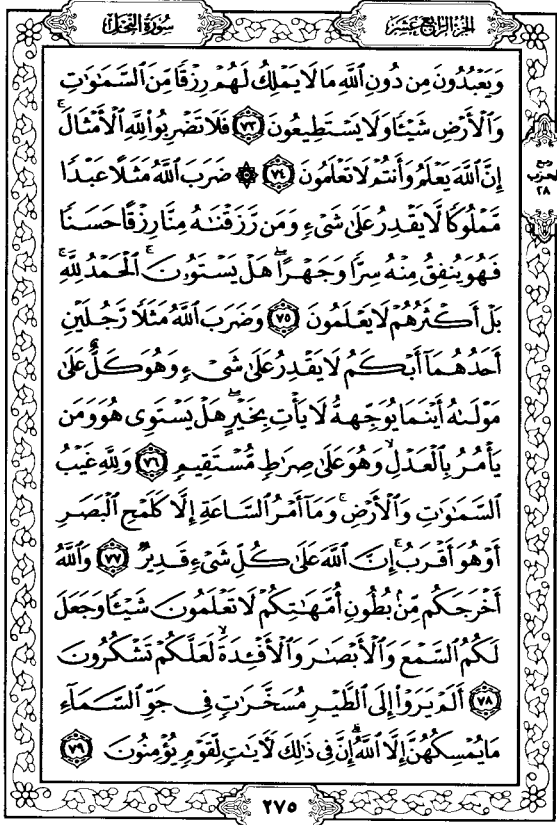 سُورَةُ النَّحْلِ
الجُزْءُ الرَّابِعَ عَشَرَ
وَيَعْبُدُونَ مِن دُونِ ٱللَّهِ مَا لَا يَمْلِكُ لَهُمْ رِزْقًا مِّنَ ٱلسَّمَٰوَٰتِ
وَٱلْأَرْضِ شَيْـًٔا وَلَا يَسْتَطِيعُونَ ٧٣ فَلَا تَضْرِبُوا۟ لِلَّهِ ٱلْأَمْثَالَ ۚ
إِنَّ ٱللَّهَ يَعْلَمُ وَأَنتُمْ لَا تَعْلَمُونَ ٧٤ ۞ ضَرَبَ ٱللَّهُ مَثَلًا عَبْدًا
مَّمْلُوكًا لَّا يَقْدِرُ عَلَىٰ شَىْءٍ وَمَن رَّزَقْنَٰهُ مِنَّا رِزْقًا حَسَنًا
فَهُوَ يُنفِقُ مِنْهُ سِرًّا وَجَهْرًا ۖ هَلْ يَسْتَوُۥنَ ۚ ٱلْحَمْدُ لِلَّهِ ۚ
بَلْ أَكْثَرُهُمْ لَا يَعْلَمُونَ ٧٥ وَضَرَبَ ٱللَّهُ مَثَلًا رَّجُلَيْنِ
أَحَدُهُمَآ أَبْكَمُ لَا يَقْدِرُ عَلَىٰ شَىْءٍ وَهُوَ كَلٌّ عَلَىٰ
مَوْلَىٰهُ أَيْنَمَا يُوَجِّههُّ لَا يَأْتِ بِخَيْرٍ ۖ هَلْ يَسْتَوِى هُوَ وَمَن
يَأْمُرُ بِٱلْعَدْلِ ۙ وَهُوَ عَلَىٰ صِرَٰطٍ مُّسْتَقِيمٍ ٧٦ وَلِلَّهِ غَيْبُ
ٱلسَّمَٰوَٰتِ وَٱلْأَرْضِ ۚ وَمَآ أَمْرُ ٱلسَّاعَةِ إِلَّا كَلَمْحِ ٱلْبَصَرِ
أَوْ هُوَ أَقْرَبُ ۚ إِنَّ ٱللَّهَ عَلَىٰ كُلِّ شَىْءٍ قَدِيرٌ ٧٧ وَٱللَّهُ
أَخْرَجَكُم مِّنۢ بُطُونِ أُمَّهَٰتِكُمْ لَا تَعْلَمُونَ شَيْـًٔا وَجَعَلَ
لَكُمُ ٱلسَّمْعَ وَٱلْأَبْصَٰرَ وَٱلْأَفْـِٔدَةَ ۙ لَعَلَّكُمْ تَشْكُرُونَ
٧٨ أَلَمْ يَرَوْا۟ إِلَى ٱلطَّيْرِ مُسَخَّرَٰتٍ فِى جَوِّ ٱلسَّمَآءِ
مَا يُمْسِكُهُنَّ إِلَّا ٱللَّهُ ۗ إِنَّ فِى ذَٰلِكَ لَءَايَٰتٍ لِّقَوْمٍ يُؤْمِنُونَ ٧٩
ربع
الحزب
٢٨
٢٧٥